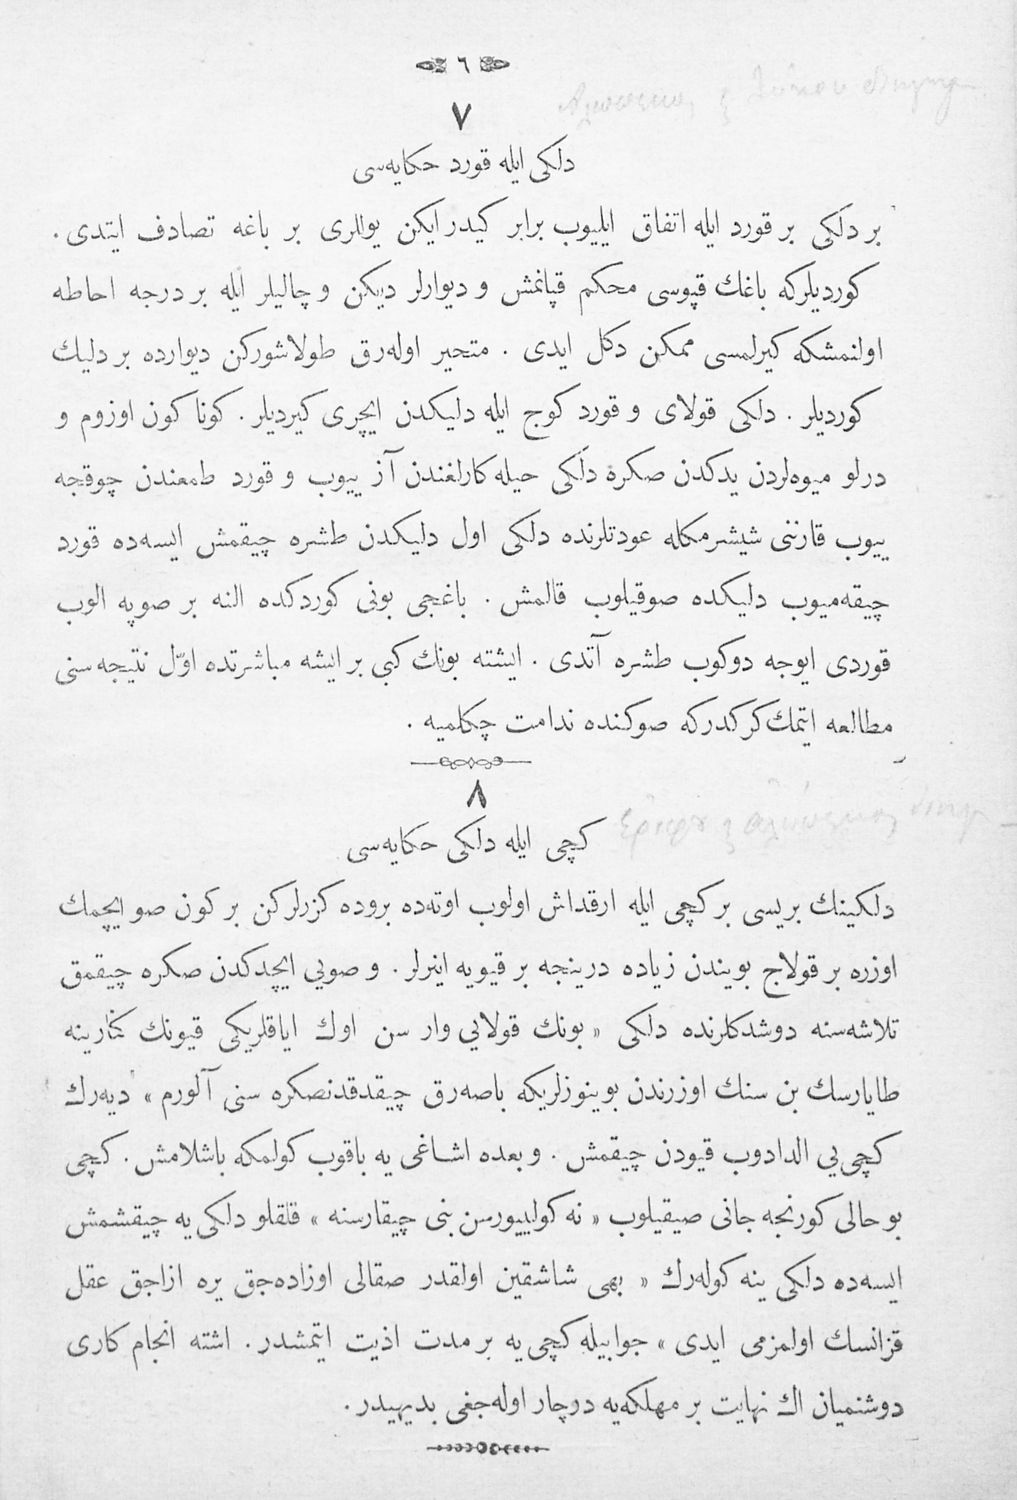 ٦
٧
دلكی ایله قورد حكایه‌سی
بر دلكی بر قورد ایله اتفاق ایلیوب برابر كیدر ایكن یوللری بر باغه تصادف ایتدی .
كوردیلركه باغك قپوسی محكم قپانمش و دیوارلر دیكن و چالیلر ایله بر درجه احاطه
اولنمشكه كیرلمسی ممكن دكل ایدی . متحیر اوله‌رق طولاشوركن دیوارده بر دلیك
كوردیلر . دلكی قولای و قورد كوج ایله دلیكدن ایچری كیردیلر . كوناكون اوزوم و
درلو میوه‌لردن یدكدن صكره دلكی حیله‌كارلغندن آز ییوب و قورد طمعندن چوقجه
ییوب قارننی شیشرمكله عودتلرنده دلكی اول دلیكدن طشره چیقمش ایسه‌ده قورد
چیقه‌میوب دلیكده صوقیلوب قالمش . باغجی بونی كوردكده النه بر صوپه الوب
قوردی ایوجه دوكوب طشره آتدی . ایشته بونك كبی بر ایشه مباشرتده اوّل نتیجه‌سنی
مطالعه ایتمك كركدركه صوكنده ندامت چكلمیه .
٨
كچی ایله دلكی حكایه‌سی
دلكینك بریسی بر كچی ایله ارقداش اولوب اوته‌ده بروده كزرلركن بر كون صو ایچمك
اوزره بر قولاج بویندن زیاده درینجه بر قیویه اینرلر . و صویی ایچدكدن صكره چیقمق
تلاشه‌سنه دوشدكلرنده دلكی « بونك قولایی وار سن اوك ایاقلریكی قیونك كنارینه
طایارسك بن سنك اوزرندن بوینوزلریكه باصه‌رق چیقدقدنصكره سنی آلورم » دیه‌رك
كچی‌یی الدادوب قیودن چیقمش . و بعده اشاغی یه باقوب كولمكه باشلامش . كچی
بو حالی كورنجه جانی صیقیلوب « نه كولییورسن بنی چیقارسنه » قلقلو دلكی یه چیقشمش
ایسه‌ده دلكی ینه كوله‌رك « بهی شاشقین اولقدر صقالی اوزاده‌جق یره ازاجق عقل
قزانسك اولمزمی ایدی » جوابیله كچی یه بر مدت اذیت ایتمشدر . اشته انجام كاری
دوشنمیان اك نهایت بر مهلكه‌یه دوچار اوله‌جغی بدیهیدر .